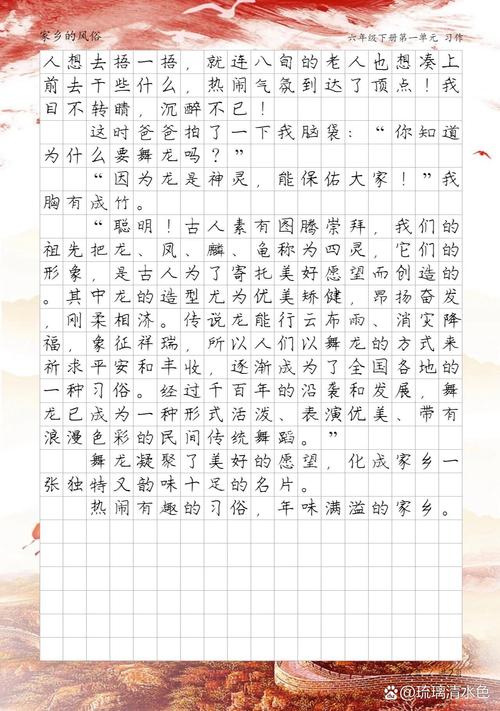 家乡的风俗 六年级下册第一单元 习作
人想去捂一捂，就连八旬的老人也想凑上
前去干些什么，热闹气氛到达了顶点！我
目不转睛，沉醉不已！
这时爸爸拍了一下我脑袋：“你知道
为什么要舞龙吗？”
“因为龙是神灵，能保佑大家！”我
胸有成竹。
“聪明！古人素有图腾崇拜，我们的
祖先把龙、凤、麟、龟称为四灵，它们的
形象，是古人为了寄托美好愿望而创造的
。其中龙的造型尤为优美矫健，昂扬奋发
，刚柔相济。传说龙能行云布雨、消灾降
福，象征祥瑞，所以人们以舞龙的方式来
祈求平安和丰收，逐渐成为了全国各地的
一种习俗。经过千百年的沿袭和发展，舞
龙已成为一种形式活泼、表演优美、带有
浪漫色彩的民间传统舞蹈。”
舞龙凝聚了美好的愿望，化成家乡一
张独特又韵味十足的名片。
热闹有趣的习俗，年味满溢的家乡。
@琉璃清水色